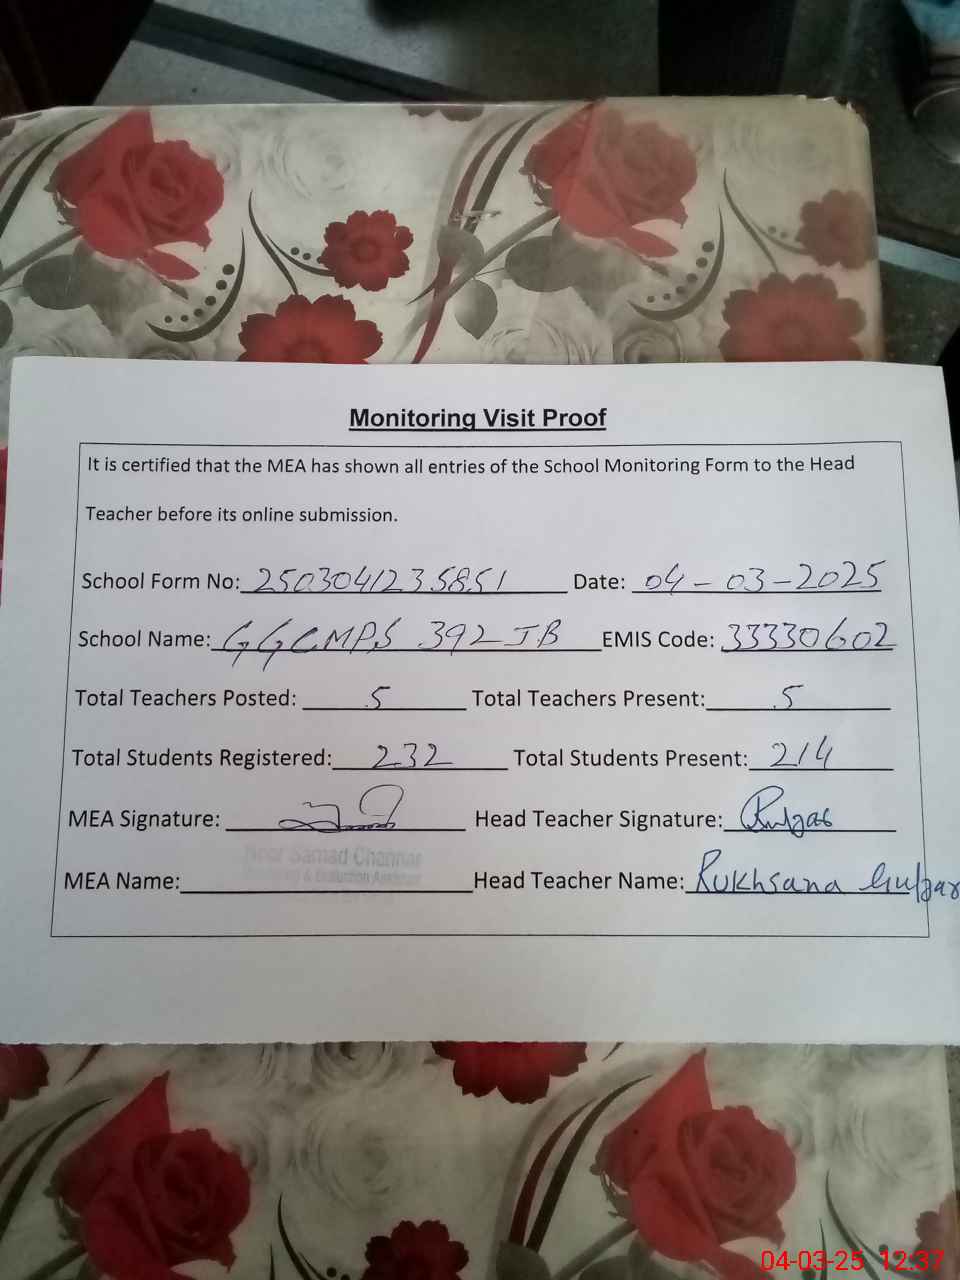 Monitoring Visit Proof
It is certified that the MEA has shown all entries of the School Monitoring Form to the Head
Teacher before its online submission.
School Form No: 2503041235851 Date: 04-03-2025
School Name: GGCMPS 392 JB EMIS Code: 33330602
Total Teachers Posted: 5 Total Teachers Present: 5
Total Students Registered: 232 Total Students Present: 214
MEA Signature: Head Teacher Signature: Rulzar
Samad Channar
MEA Name: Head Teacher Name: Rukhsana Gulzar
04-03-25 12:37